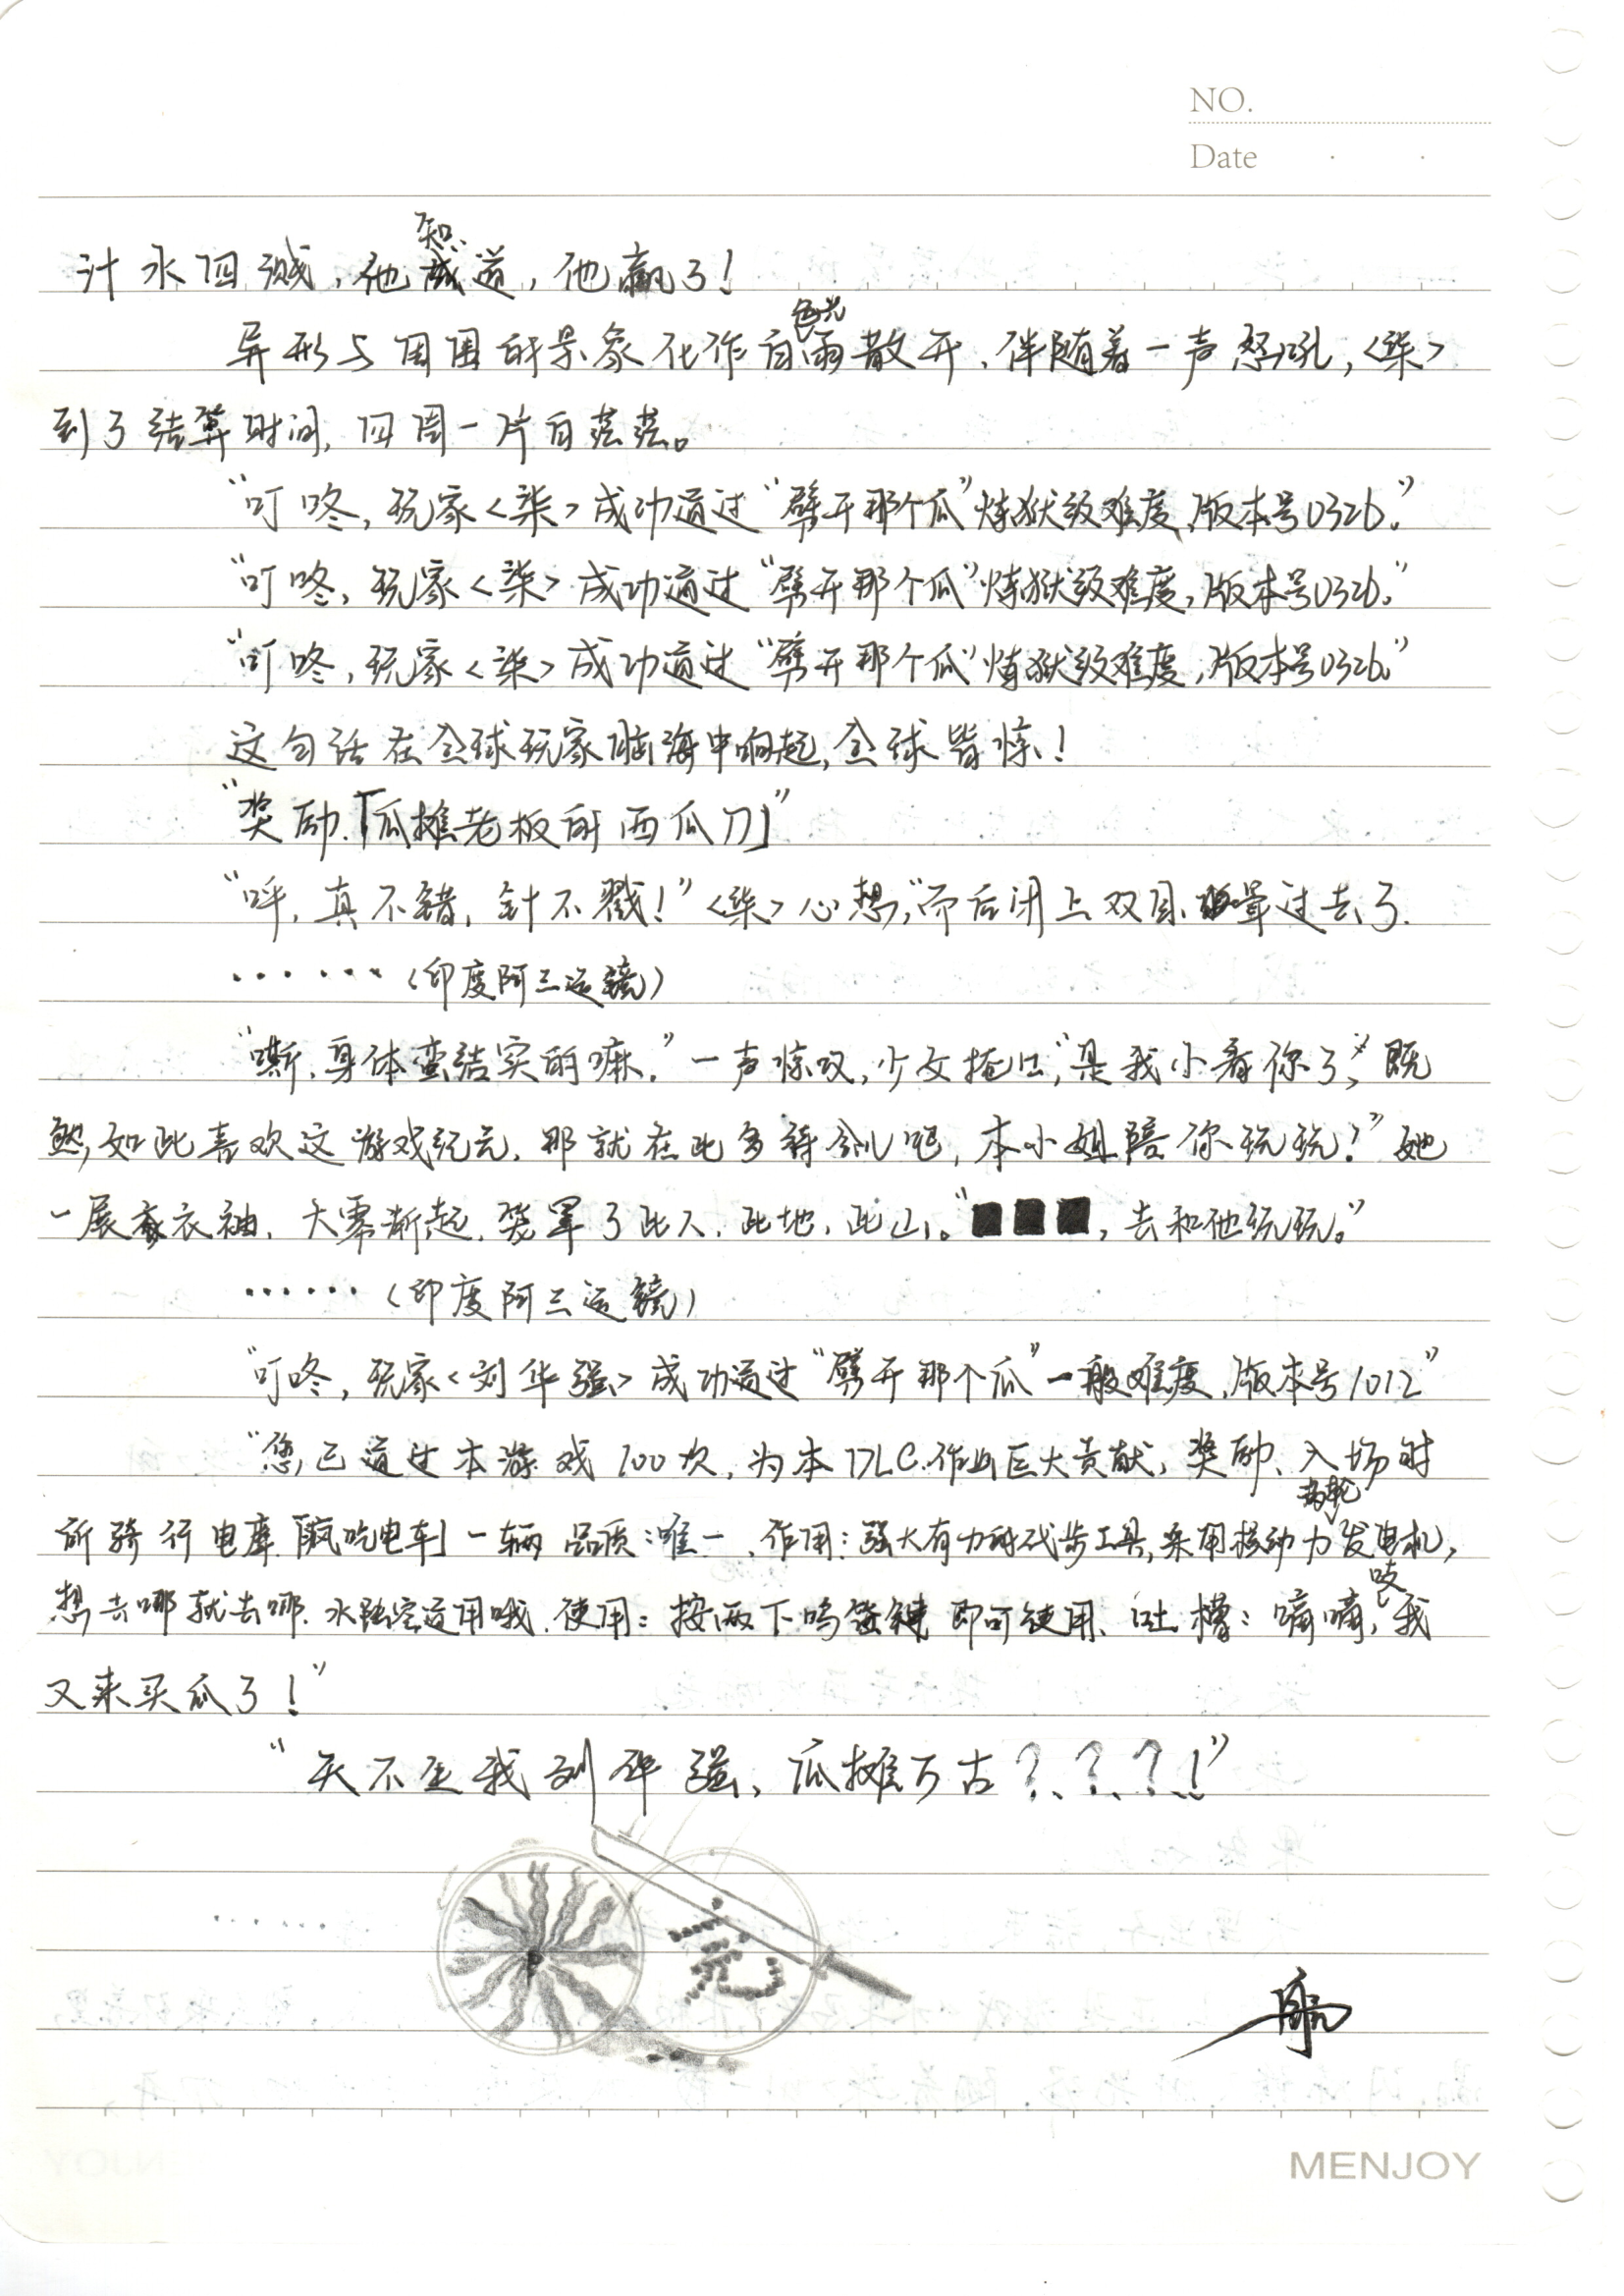 NO.
Date
汁水四溅，他知道，他赢了！
异形与周围的景象化作白色光雨散开，伴随着一声怒吼，<柒>
到了结算时间，四周一片白茫茫。
“叮咚，玩家<柒>成功通过“劈开那个瓜”炼狱级难度，版本号0326。”
“叮咚，玩家<柒>成功通过“劈开那个瓜”炼狱级难度，版本号0326。”
“叮咚，玩家<柒>成功通过“劈开那个瓜”炼狱级难度，版本号0326。”
这句话在全球玩家脑海中响起，全球皆惊！
“奖励.「瓜摊老板的西瓜刀」”
“呼，真不错，针不戳！”<柒>心想，“而后闭上双目，晕过去了.
······（印度阿三运镜）
“嘶，身体蛮结实的嘛。”一声惊叹，少女掩口，“是我小看你了，既
然，如此喜欢这游戏纪元，那就在此多待会儿吧，本小姐陪你玩玩！”她
一展衣袖，大雾渐起，笼罩了此人，此地，此山。“■■■，去和他玩玩。”
······（印度阿三运镜）
“叮咚，玩家<刘华强>成功通过“劈开那个瓜”一般难度，版本号1012”
“您已通过本游戏100次，为本DLC.作出巨大贡献，奖励、入场时
所骑行电摩「疯吃电车」一辆 品质：唯一，作用：强大有力的代步工具，采用核动力涡轮发电机，
想去哪就去哪.水陆空适用哦.使用：按两下鸣笛键即可使用、吐槽：嘀嘀，吱，我
又来买瓜了！”
“天不生我刘华强，瓜摊万古？、？、？、！”
完
······
MENJOY